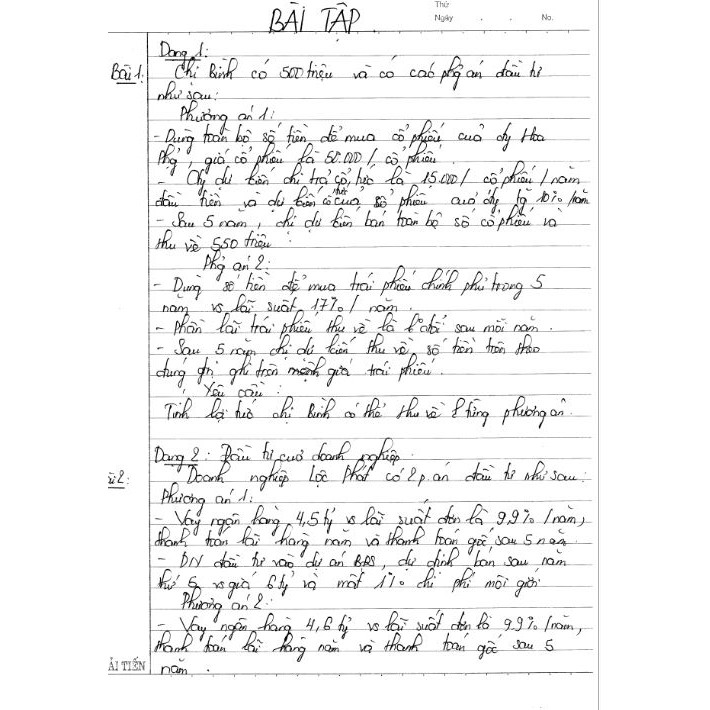 Thứ
Ngày . . No.
BÀI TẬP
Dạng 1:
Bài 1: Chị Bình có 500 triệu và có các phg án đầu tư
như sau:
Phương án 1:
- Dùng toàn bộ số tiền để mua cổ phiếu của cty Hoa
Phg, giá cổ phiếu là 50.000/ cổ phiếu.
- Cty dự kiến chi trả cổ tức là 15.000/ cổ phiếu/năm
đầu tiên và dự kiến cổ tức của số phiếu của cty là 10%/năm
- Sau 5 năm, chị dự kiến bán toàn bộ số cổ phiếu và
thu về 550 triệu.
Phg án 2:
- Dùng số tiền để mua trái phiếu chính phủ trong 5
năm vs lãi suất 17%/ năm.
- Phần lãi trái phiếu thu về là sau mỗi năm.
- Sau 5 năm chị dự kiến thu về số tiền trên theo
đúng gtrị ghi trên mệnh giá trái phiếu.
Yêu cầu:
Tính lợi tức chị Bình có thể thu về ở từng phương án.
Dạng 2: Đầu tư của doanh nghiệp.
2: Doanh nghiệp Lộc Phát có 2 p.án đầu tư như sau:
Phương án 1:
- Vay ngân hàng 4,5 tỷ vs lãi suất đơn là 9,9%/năm,
thanh toán lãi hàng năm và thanh toán gốc sau 5 năm.
- DN đầu tư vào dự án BĐS, dự định bán sau năm
thứ 5 vs giá 6 tỷ và mất 1% chi phí môi giới.
Phương án 2:
- Vay ngân hàng 4,6 tỷ vs lãi suất đơn là 9,9%/năm,
thanh toán lãi hàng năm và thanh toán gốc sau 5
năm.
ẢI TIẾN